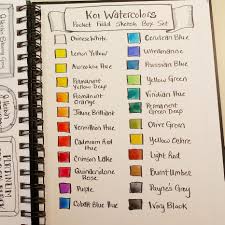 Koi Watercolors
Pocket Field Sketch Box Set
Chinese White
Lemon Yellow
Aureolin Hue
Permanent
Yellow Deep
Permanent
Orange
Jaune Brilliant
Vermilion Hue
Cadmium Red
Hue
Crimson Lake
Quinacridone
Rose
Purple
Cobalt Blue Hue
Cerulean Blue
Ultramarine
Prussian Blue
Yellow Green
Viridian Hue
Permanent
Green Deep
Olive Green
Yellow Ochre
Light Red
Burnt Umber
Payne's Grey
Ivory Black